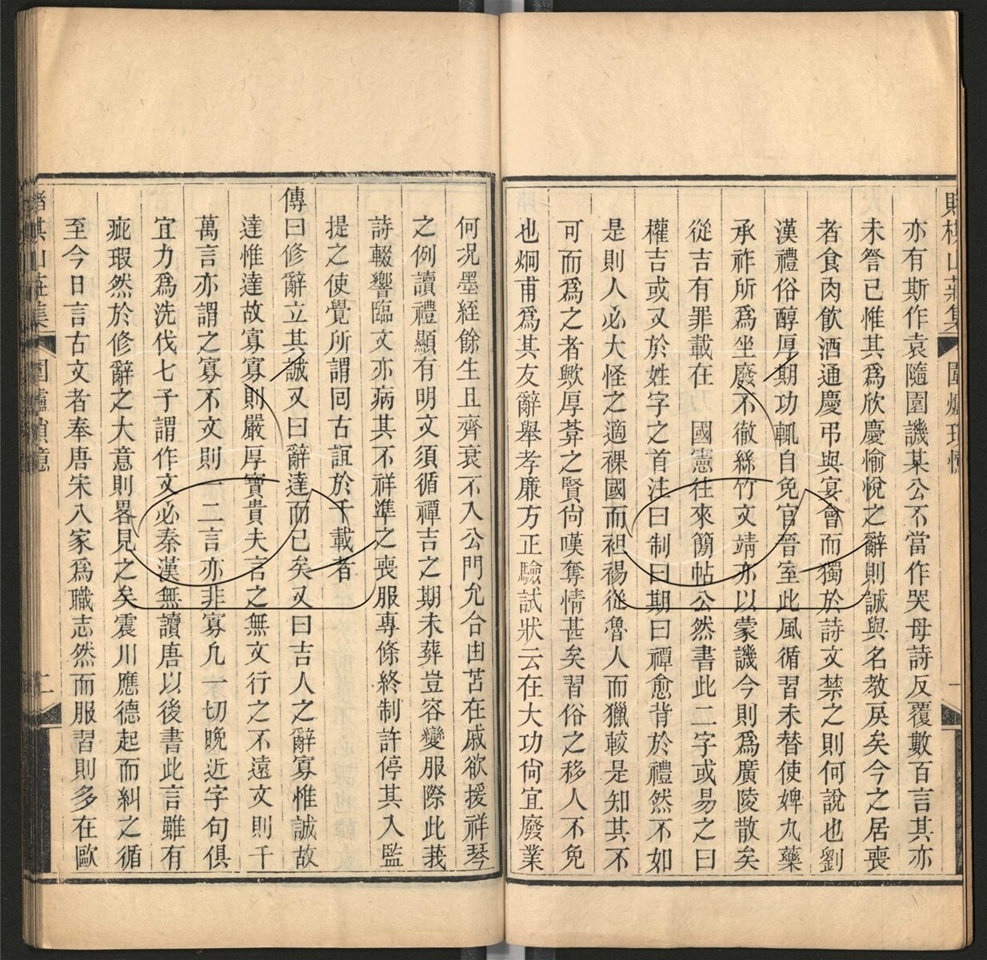 賭棋山莊集 圍爐瑣憶 一
亦有斯作袁隨園譏某公不當作哭母詩反覆數百言其亦
未詧已惟其為欣慶愉悅之辭則誠與名教戾矣今之居喪
者食肉飲酒通慶弔與宴會而獨於詩文禁之則何說也劉
漢禮俗醇厚期功輒自免官晉室此風循習未替使婢丸藥
承祚所為坐廢不徹絲竹文靖亦以蒙譏今則為廣陵散矣
從吉有罪載在 國憲往來簡帖公然書此二字或易之曰
權吉或又於姓字之首注曰制曰期曰禫愈背於禮然不如
是則人必大怪之適裸國而袒裼從魯人而獵較是知其不
可而為之者歟厚葊之賢尙嘆奪情甚矣習俗之移人不免
也炯甫為其友辭舉孝廉方正驗試狀云在大功尙宜廢業
何况墨絰餘生且齊衰不入公門允合苫在戚欲援祥琴
之例讀禮顯有明文須循禫吉之期未葬豈容變服際此莪
詩輟響臨文亦病其不祥準之喪服專條終制許停其入監
提之使覺所謂同古誼於千載者
傳曰修辭立其誠又曰辭達而已矣又曰吉人之辭寡惟誠故
達惟達故寡寡則嚴厚寶貴夫言之無文行之不遠文則千
萬言亦謂之寡不文則一二言亦非寡凡一切晚近字句俱
宜力為洗伐七子謂作文必秦漢無讀唐以後書此言雖有
疵瑕然於修辭之大意則畧見之矣震川應德起而糾之循
至今日言古文者奉唐宋八家為職志然而服習則多在歐
賭棋山莊集 圍爐瑣憶 二